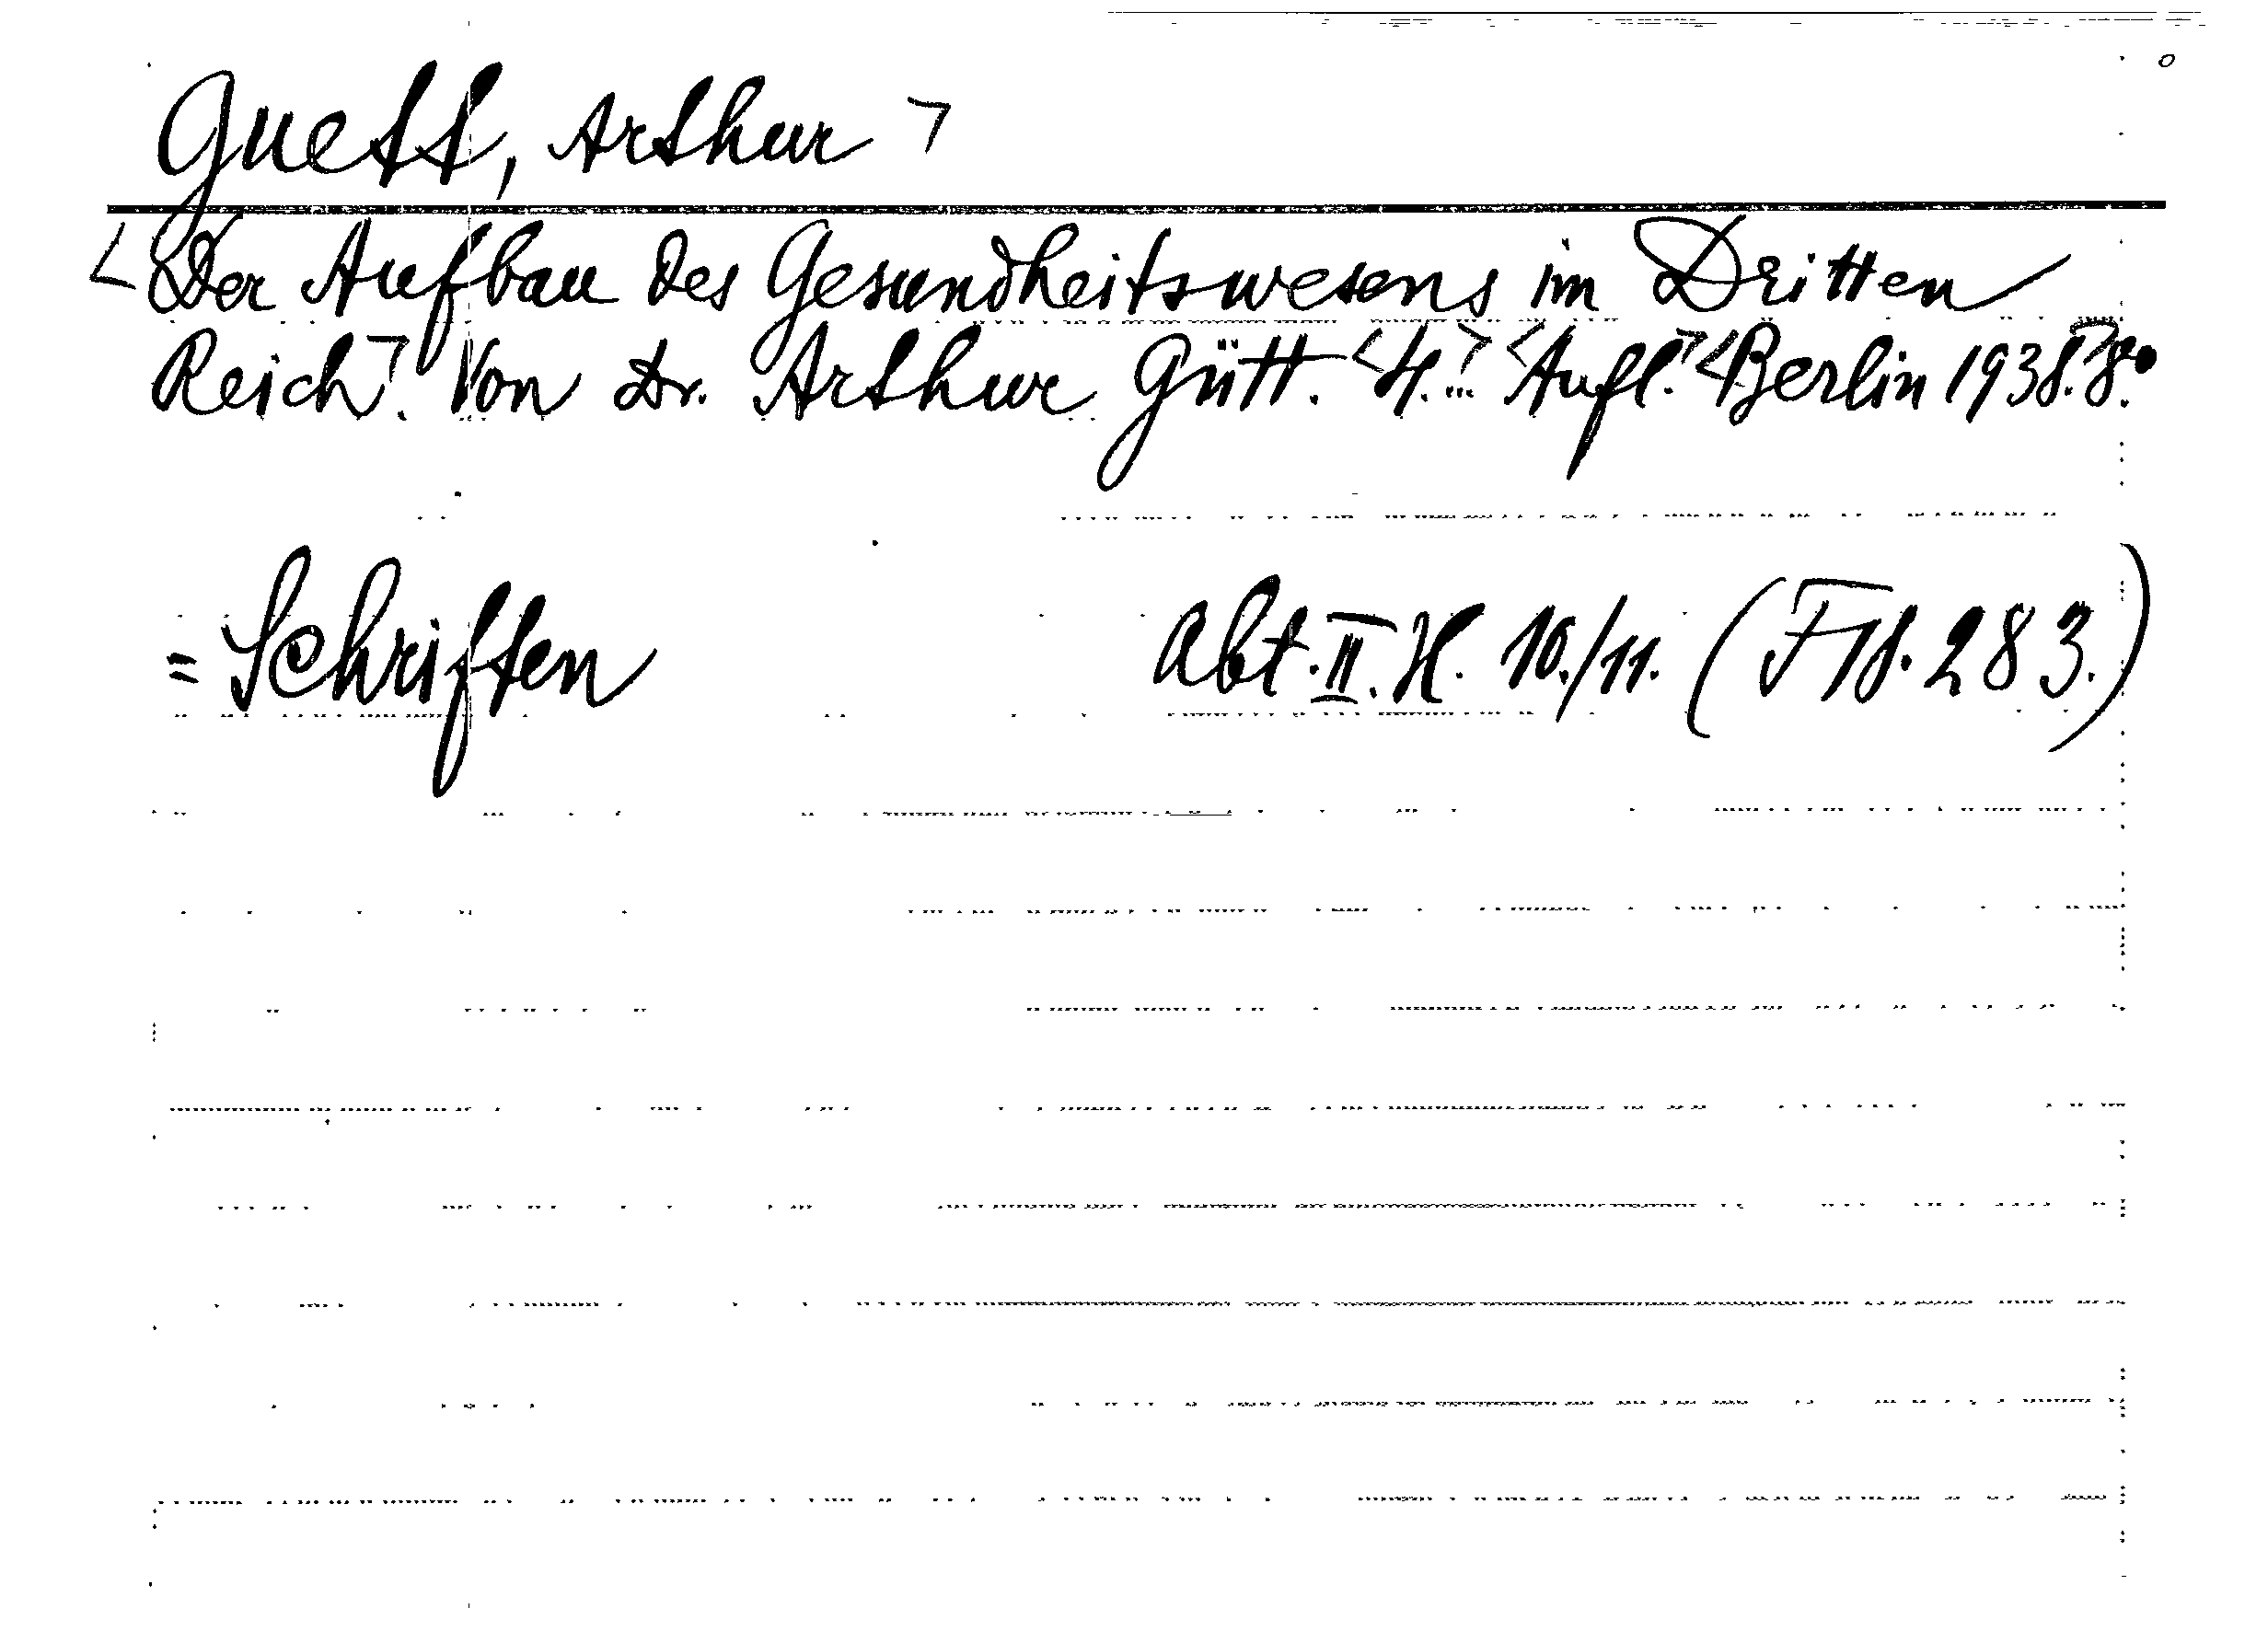 Guett, Arthur ⌉
<Der Aufbau des Gesundheitswesens im Dritten
Reich⌉. Von Dr. Arthur Gütt. <4.⌉... <Aufl.⌉ <Berlin 1938.⌉ 8°.
= Schriften Abt. II. H. 10./11. (F 18. 283.)